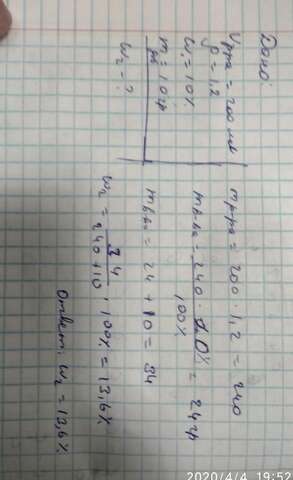 Дано:
Vр-ра = 200 мл
ρ = 1,2
W₁ = 10%
m = 10 гр
W₂ - ?
mр-ра = 200 · 1,2 = 240
mв-ва = 240 · 10% / 100% = 24 гр
mв-ва = 24 + 10 = 34
W₂ = 34 / 240+10 · 100% = 13,6%
Ответ: W₂ = 13,6%
2020/4/4 19:52